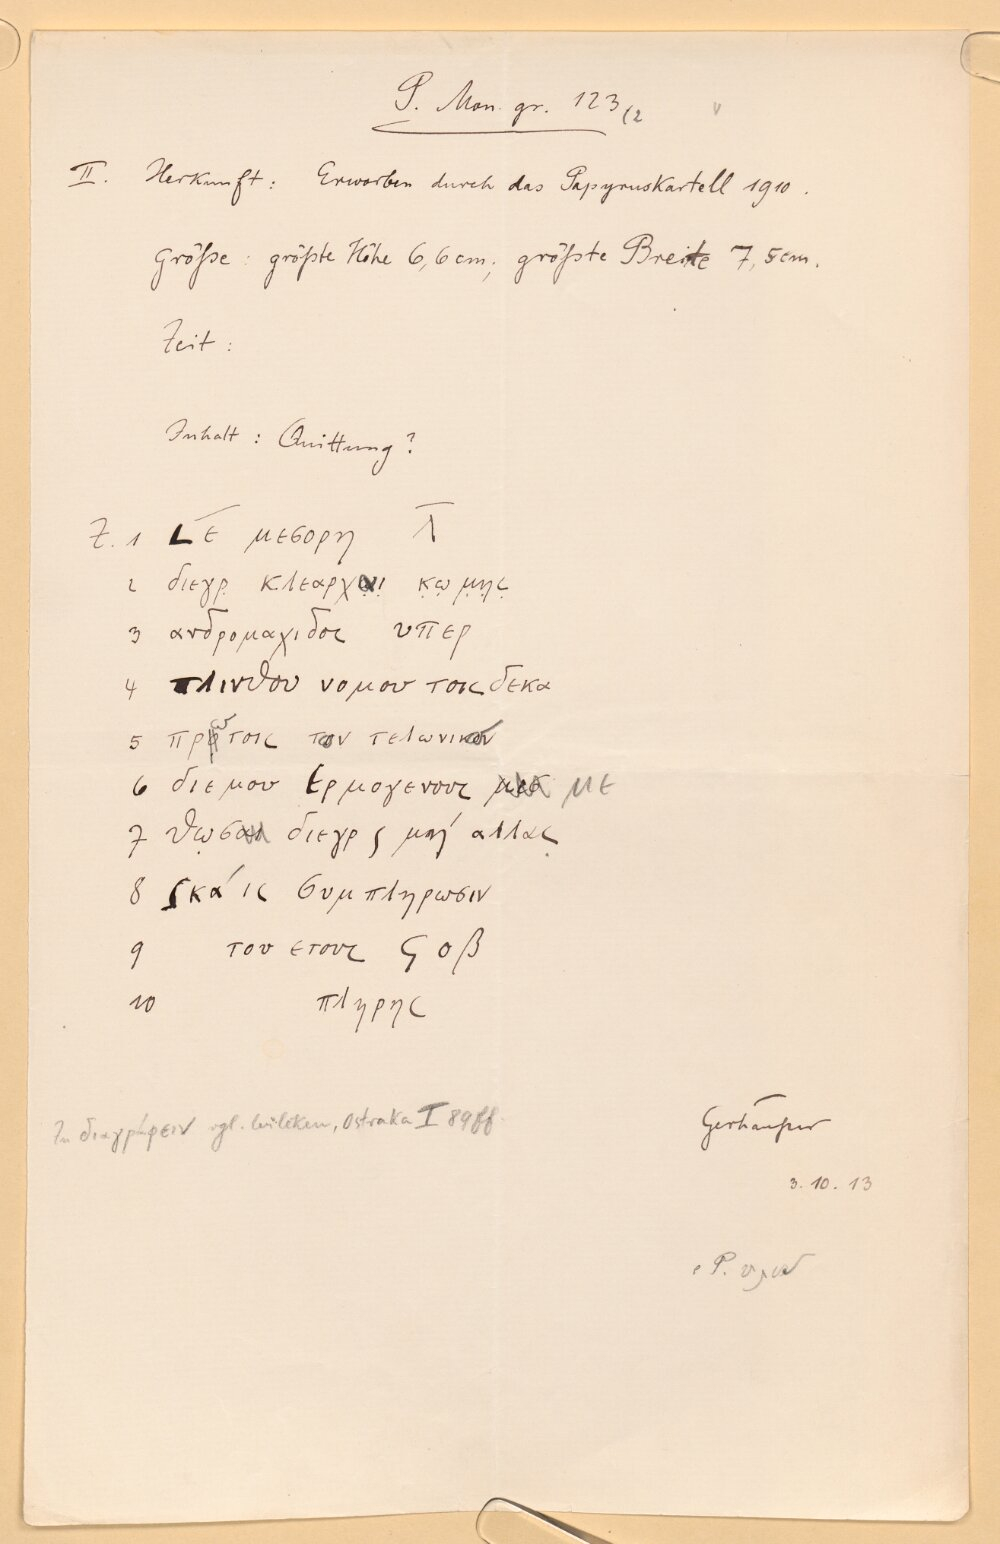 P. Mon. gr. 123/2
II. Herkunft: Erworben durch das Papyruskartell 1910.
Größe: größte Höhe 6,6 cm; größte Breite 7,5 cm.
Zeit:
Inhalt: Quittung?
Z. 1 L ε̅ μεσορη λ̅
2 διεγρ̣ κλεαρχω̣ι̣ κ̣ω̣μ̣η̣ς̣
3 ανδρομαχιδος υπερ
4 πλινθου νομου τοις δεκα
5 πρωτοις τον τελωνικον
6 διεμου Ερμογενους με
7 θω̣σ διεγρ ς αλλας̣
8 ςκα ις συμπληρωσιν
9 του ετους ς οβ
10 πληρης
Zu διαγράφειν vgl. Wilcken, Ostraka I 89 ff.
3.10.13